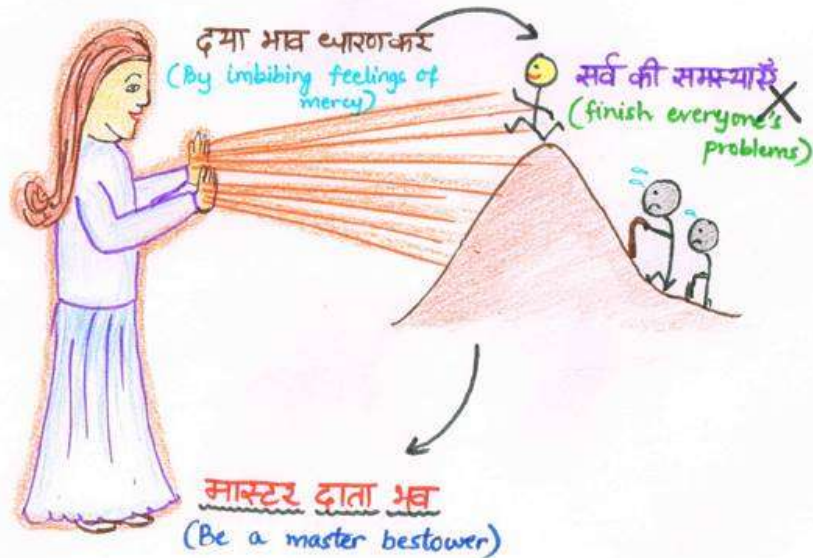 दया भाव धारण कर
(By imbibing feelings of
mercy)
सर्व की समस्याएँ
(finish everyone's
problems)
मास्टर दाता भव
(Be a master bestower)